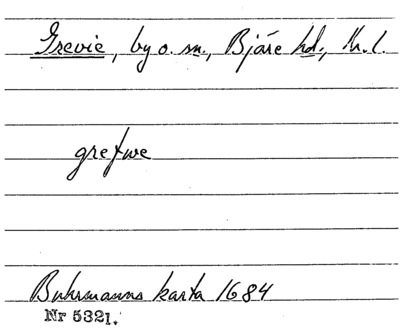 Grevie, by o. sn., Bjäre hd., Kr. l.
grefwe
Buhrmanns karta 1684
Nr 5321.